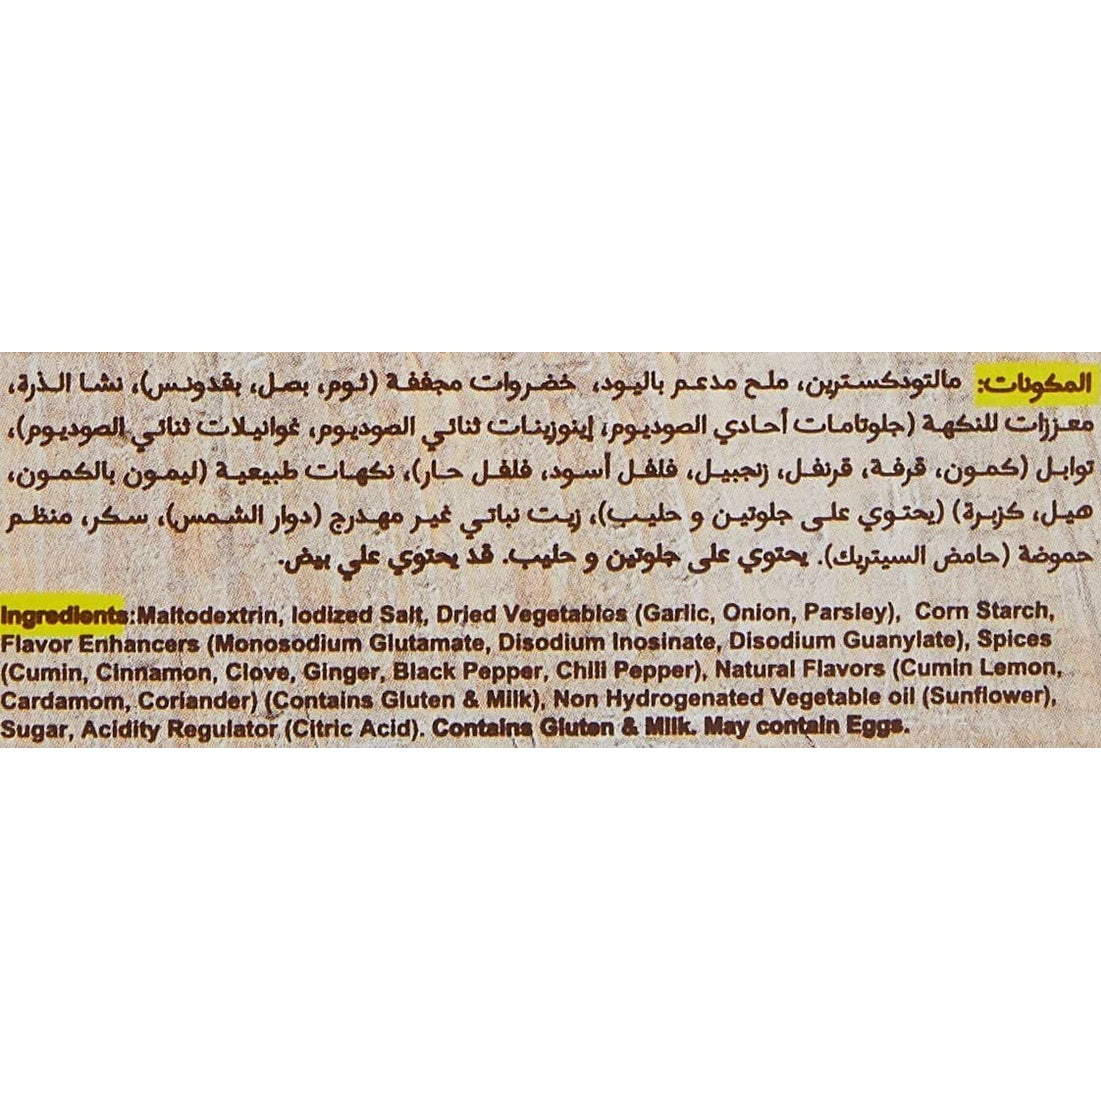 المكونات: مالتودكسترين، ملح مدعم باليود، خضروات مجففة (ثوم، بصل، بقدونس)، نشا الذرة،
معززات للنكهة (جلوتامات أحادي الصوديوم، إينوزينات ثنائي الصوديوم، غوانيلات ثنائي الصوديوم)،
توابل (كمون، قرفة، قرنفل، زنجبيل، فلفل أسود، فلفل حار)، نكهات طبيعية (ليمون بالكمون،
هيل، كزبرة) (يحتوي على جلوتين و حليب)، زيت نباتي غير مهدرج (دوار الشمس)، سكر، منظم
حموضة (حامض السيتريك). يحتوي على جلوتين و حليب. قد يحتوي علي بيض.
Ingredients:Maltodextrin, Iodized Salt, Dried Vegetables (Garlic, Onion, Parsley), Corn Starch,
Flavor Enhancers (Monosodium Glutamate, Disodium Inosinate, Disodium Guanylate), Spices
(Cumin, Cinnamon, Clove, Ginger, Black Pepper, Chili Pepper), Natural Flavors (Cumin Lemon,
Cardamom, Coriander) (Contains Gluten & Milk), Non Hydrogenated Vegetable oil (Sunflower),
Sugar, Acidity Regulator (Citric Acid). Contains Gluten & Milk. May contain Eggs.